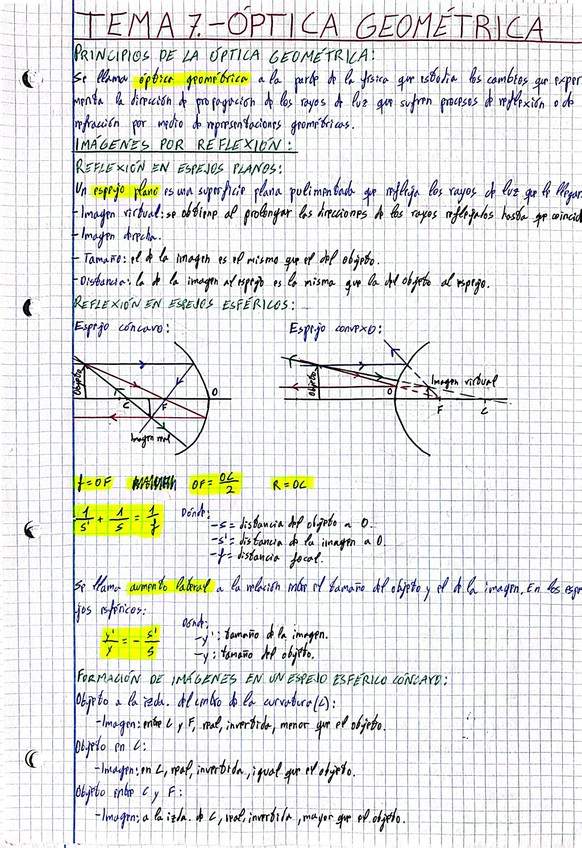 TEMA 7.-ÓPTICA GEOMÉTRICA
PRINCIPIOS DE LA ÓPTICA GEOMÉTRICA:
Se llama óptica geométrica a la parte de la física que estudia los cambios que exper
menta la dirección de propagación de los rayos de luz que sufren procesos de reflexión o de
refracción por medio de representaciones geométricas.
IMÁGENES POR REFLEXIÓN:
REFLEXIÓN EN ESPEJOS PLANOS:
Un espejo plano es una superficie plana pulimentada que refleja los rayos de luz que le llegan.
-Imagen virtual: se obtiene al prolongar las direcciones de los rayos reflejados hasta que coincid
-Imagen derecha.
-Tamaño: el de la imagen es el mismo que el del objeto.
-Distancia: la de la imagen al espejo es la misma que la del objeto al espejo.
REFLEXIÓN EN ESPEJOS ESFÉRICOS:
Espejo cóncavo:
Espejo convexo:
Objeto
C
F
O
Imagen real
Objeto
O
Imagen virtual
F
C
f=OF OF=OC/2 R=OC
1/s' + 1/s = 1/f
Dónde:
-s= distancia del objeto a O.
-s'= distancia de la imagen a O.
-f= distancia focal.
Se llama aumento lateral a la relación entre el tamaño del objeto y el de la imagen. En los espe
jos esféricos:
y'/y = - s'/s
Dónde:
-y': tamaño de la imagen.
-y: tamaño del objeto.
FORMACIÓN DE IMÁGENES EN UN ESPEJO ESFÉRICO CÓNCAVO:
Objeto a la izda. del centro de la curvatura(C):
-Imagen: entre C y F, real, invertida, menor que el objeto.
Objeto en C:
-Imagen: en C, real, invertida, igual que el objeto.
Objeto entre C y F:
-Imagen: a la izda. de C, real, invertida, mayor que el objeto.